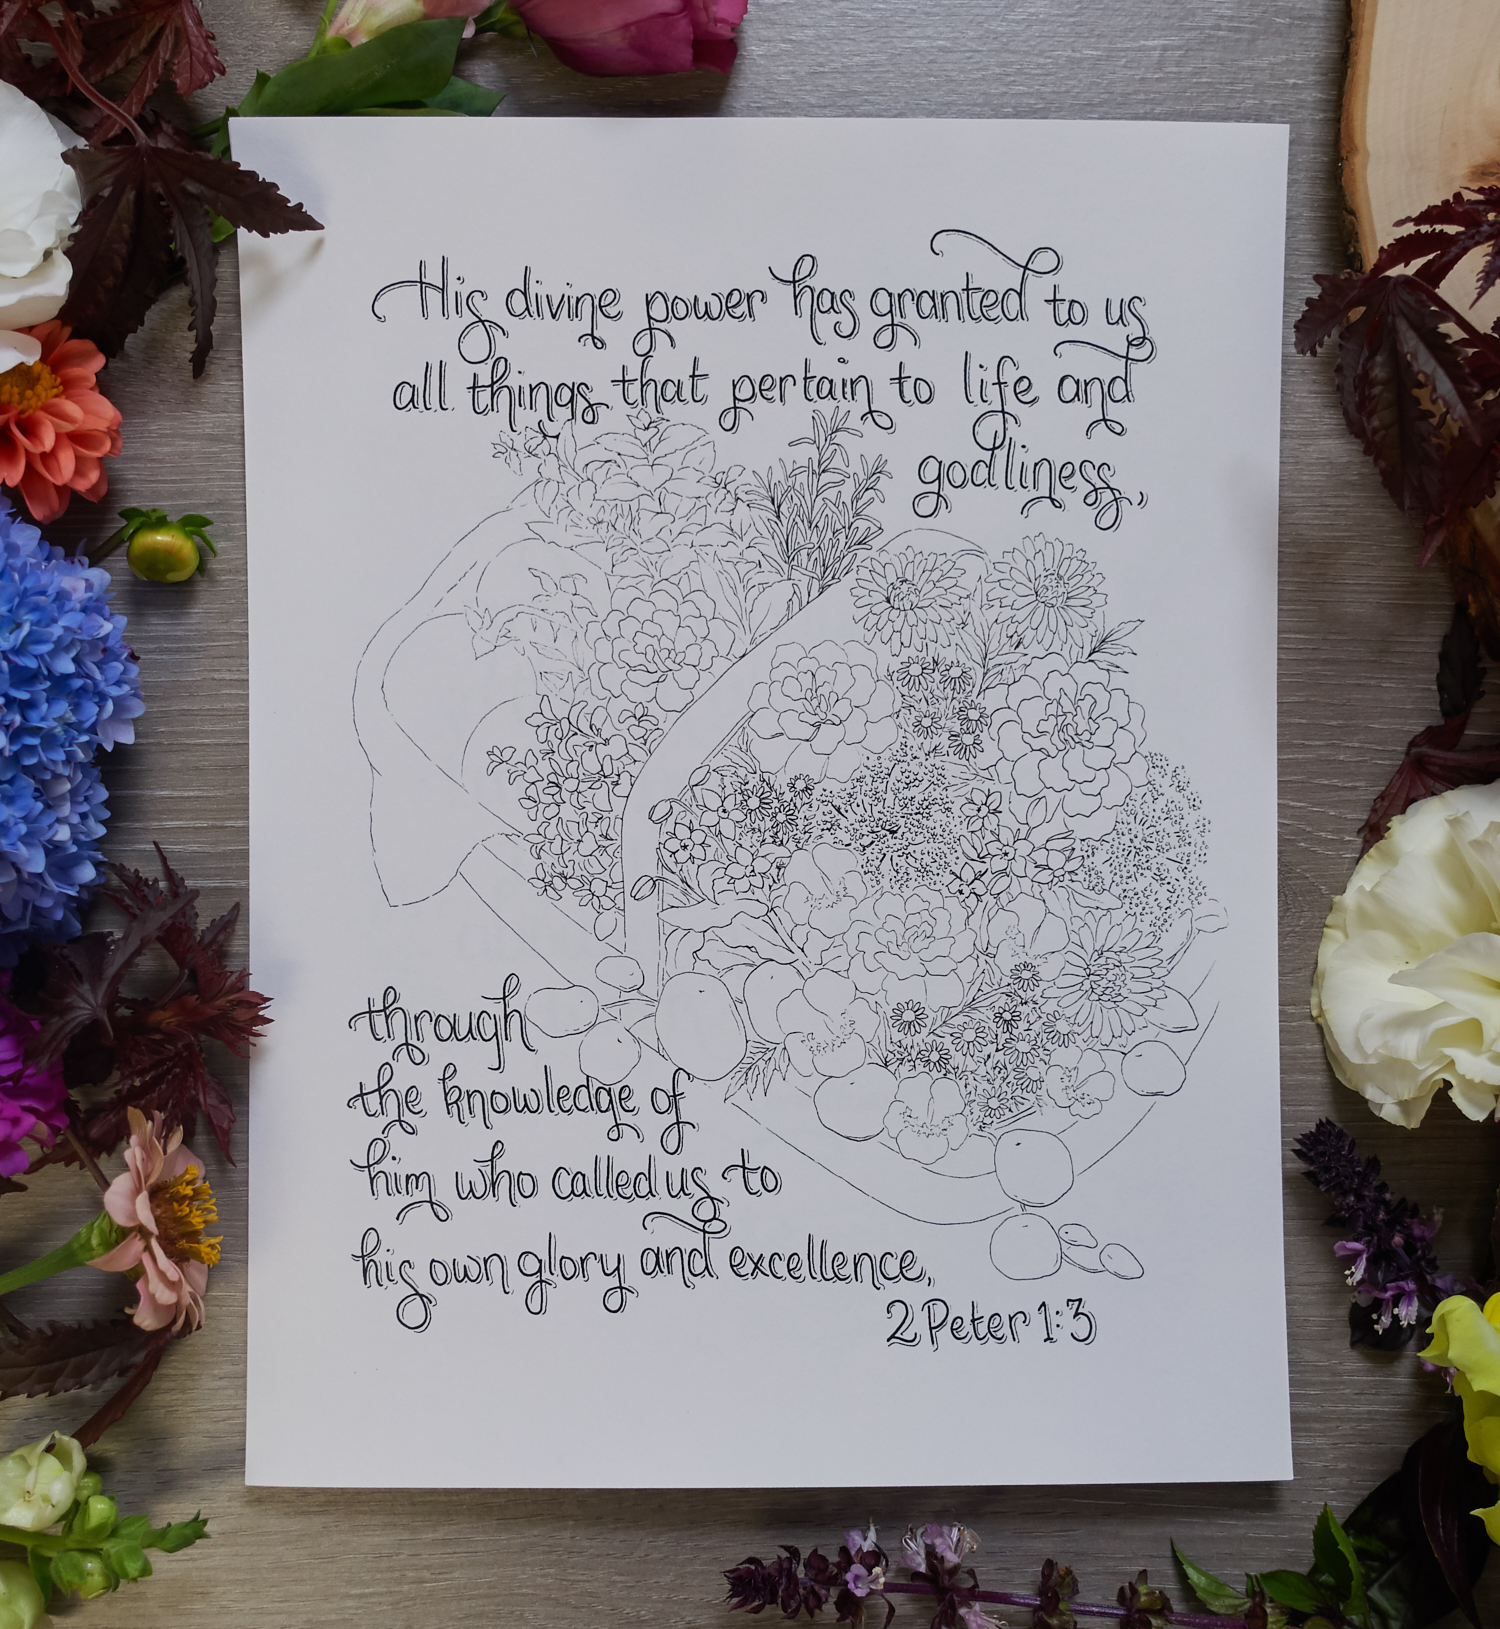 His divine power has granted to us
all things that pertain to life and
godliness,
through
the knowledge of
him who called us to
his own glory and excellence,
2 Peter 1:3